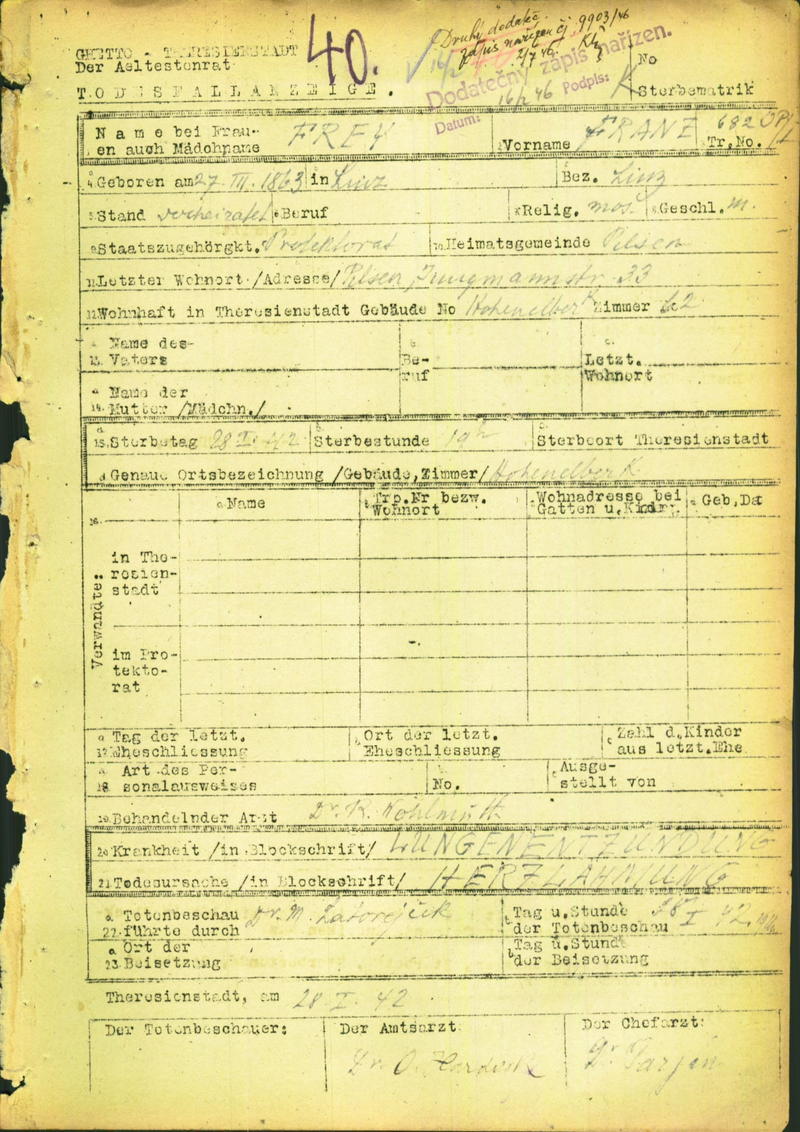 40.
Druhý dodateč.
zápis nařízen čj 9903/46
2/7 46. Kř
Dodatečný zápis nařízen.
Datum: 16/2 46 Podpis:
GHETTO - THERESIENSTADT
Der Aeltestenrat
TODESFALLANZEIGE.
No
Sterbematrik
Name bei Frau-
en auch Mädchname FREY
Vorname FRANZ
682
Tr.No.
4. Geboren am 27. III. 1863 in Linz Bez. Linz
5. Stand verheiratet Beruf Relig. mos. Geschl. m.
9. Staatszugehörgkt. Protektorat 10. Heimatsgemeinde Pilsen
11. Letzter Wohnort /Adresse/ Pilsen, Jungmannstr. 33
12. Wohnhaft in Theresienstadt Gebäude No Hohenelbe K Zimmer
13. Name des Vaters
Be-
ruf
Letzt.
Wohnort
14. Name der
Mutter /Mädchn./
15. Sterbetag 28 I. 42 Sterbestunde 19h Sterbeort Theresienstadt
Genaue Ortsbezeichnung /Gebäude, Zimmer/ Hohenelbe K
16.
Verwandte:
Name
Trp.Nr bezw.
Wohnort
Wohnadresse bei
Gatten u. Kindr.
Geb.Da
in The-
resien-
stadt
im Pro-
tekto-
rat
17. Tag der letzt.
Eheschliessung
Ort der letzt.
Eheschliessung
Zahl d. Kinder
aus letzt. Ehe
18. Art des Per-
sonalausweises
No.
Ausge-
stellt von
19. Behandelnder Arzt Dr. K.
20. Krankheit /in Blockschrift/ LUNGENENTZÜNDUNG
21. Todesursache /in Blockschrift/ HERZLÄHMUNG
22. Totenbeschau
führte durch Dr. M.
Tag u. Stunde
der Totenbeschau 28 I 42
23. Ort der
Beisetzung
Tag u. Stunde
der Beisetzung
Theresienstadt, am 28 I. 42.
Der Totenbeschauer:
Der Amtsarzt
Der Chefarzt:
Dr. O.
Dr.